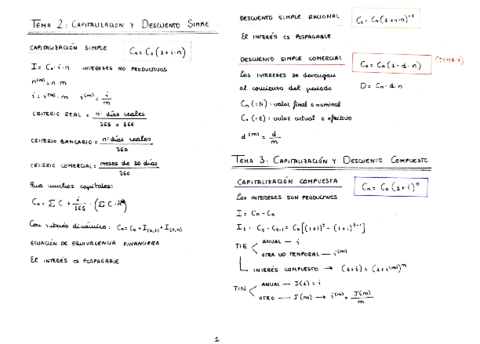 TEMA 2: CAPITALIZACIÓN Y DESCUENTO SIMPLE
CAPITALIZACIÓN SIMPLE
Cn = Co (1 + i·n)
I = Co · i · n INTERESES NO PRODUCTIVOS
n(m) = n · m
i = i(m) · m i(m) = i/m
CRITERIO REAL = nº días reales / 365 o 366
CRITERIO BANCARIO = nº días reales / 360
CRITERIO COMERCIAL = meses de 30 días / 360
Para muchos capitales:
Cn = Σ C + i/365 · (Σ C · n)
Con sistema dinámico: Cn = Co +
ECUACIÓN DE EQUIVALENCIA FINANCIERA
El INTERÉS ES POSPAGABLE
DESCUENTO SIMPLE RACIONAL
Co = Cn (1 + i·n)⁻¹
El INTERÉS ES POSPAGABLE
DESCUENTO SIMPLE COMERCIAL
Co = Cn (1 - d·n)
(TEMA 4)
Los intereses se devengan
al comienzo del periodo
D = Cn · d · n
Cn (=N): valor final o nominal
Co (=E): valor actual o efectivo
d(m) = d/m
TEMA 3: CAPITALIZACIÓN Y DESCUENTO COMPUESTO
CAPITALIZACIÓN COMPUESTA
Cn = Co (1 + i)ⁿ
Los INTERESES SON PRODUCTIVOS
I = Cn - Co
TIE
ANUAL — i
OTRA UD TEMPORAL — i(m)
INTERÉS COMPUESTO → (1 + i) = (1 + i(m))ᵐ
TIN
ANUAL — J(1) = i
OTRO — J(m) → i(m) = J(m)/m
1